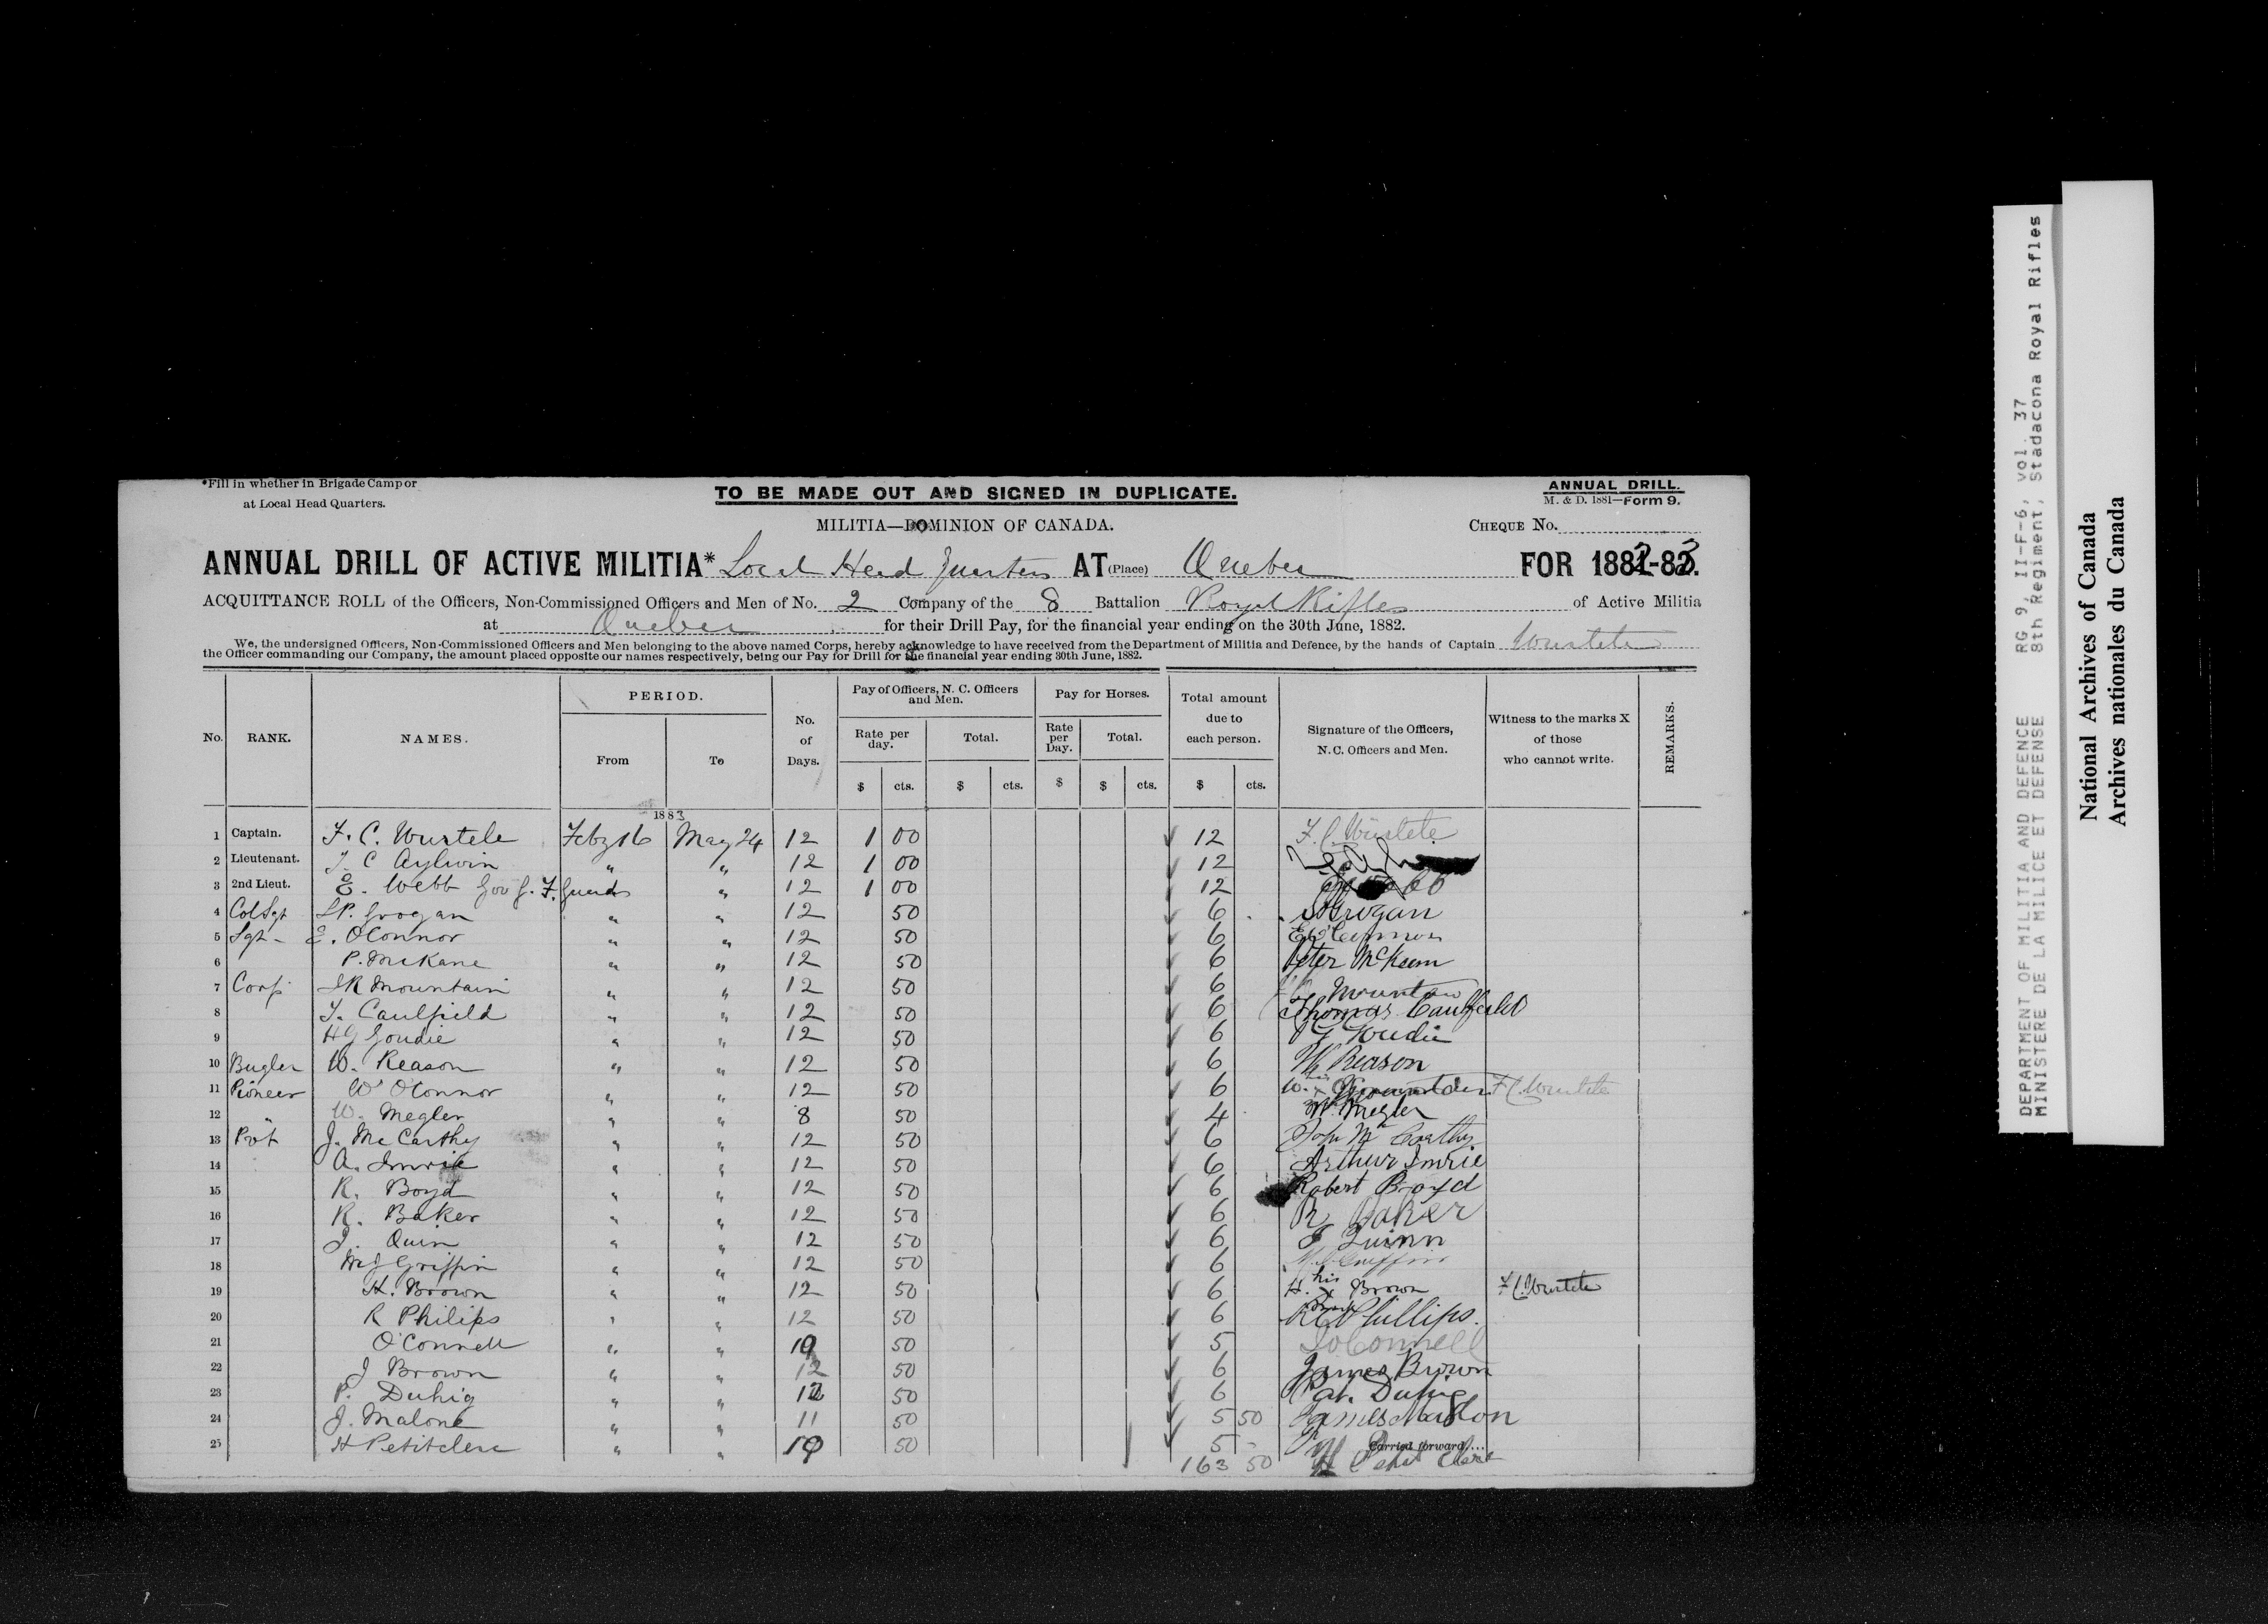 *Fill in whether in Brigade Camp or
at Local Head Quarters.
TO BE MADE OUT AND SIGNED IN DUPLICATE.
ANNUAL DRILL.
M. & D. 1881—Form 9.
MILITIA—DOMINION OF CANADA.
CHEQUE No.
ANNUAL DRILL OF ACTIVE MILITIA* Local Head Quarters AT (Place) Quebec FOR 1882-83.
ACQUITTANCE ROLL of the Officers, Non-Commissioned Officers and Men of No. 2 Company of the 8 Battalion Royal Rifles of Active Militia
at Quebec for their Drill Pay, for the financial year ending on the 30th June, 1882.
We, the undersigned Officers, Non-Commissioned Officers and Men belonging to the above named Corps, hereby acknowledge to have received from the Department of Militia and Defence, by the hands of Captain Wurtele
the Officer commanding our Company, the amount placed opposite our names respectively, being our Pay for Drill for the financial year ending 30th June, 1882.
No. RANK. NAMES. PERIOD. From To No. of Days. Pay of Officers, N. C. Officers and Men. Rate per day. $ cts. Total. $ cts. Pay for Horses. Rate per Day. $ Total. $ cts. Total amount due to each person. $ cts. Signature of the Officers, N. C. Officers and Men. Witness to the marks X of those who cannot write. REMARKS.
1883
1 Captain. F. C. Wurtele Feby 16 May 24 12 1 00 12 F. C. Wurtele
2 Lieutenant. T. C Aylwin " " 12 1 00 12
3 2nd Lieut. E. Webb Gov G. F. Guards " 12 1 00 12
4 Col Sgt Grogan " " 12 50 6 Grogan
5 Sgt - E. OConnor " " 12 50 6 E O'Connor
6 P. McKane " " 12 50 6 Peter McKeern
7 Corp JR Mountain " " 12 50 6 Mountain
8 T. Caulfield " " 12 50 6 Thomas Caulfield
9 HG Goudie " " 12 50 6 Goudie
10 Bugler W. Reason " " 12 50 6 W Reason
11 Pioneer W OConnor " " 12 50 6 W. his x F C Wurtele
12 " W. Megler " " 8 50 4 W. Megler
13 Pvt J. McCarthy " " 12 50 6 John McCarthy
14 A. Imrie " " 12 50 6 Arthur Imrie
15 R. Boyd " " 12 50 6 Robert Boyd
16 R. Baker " " 12 50 6 R Baker
17 J. Quin " " 12 50 6 J Quinn
18 M J Griffin " " 12 50 6 M J Griffin
19 H. Brown " " 12 50 6 H. his x mark Brown F C Wurtele
20 R Philips " " 12 50 6 R Phillips.
21 O'Connell " " 10 50 5 J OConnell
22 J Brown " " 12 50 6 James Brown
23 P. Duhig " " 12 50 6 Pat. Duhig
24 J. Malone " " 11 50 5 50 James
25 H Petitclerc " " 10 50 5 - H Petit Clerc
Carried forward....
163 50
DEPARTMENT OF MILITIA AND DEFENCE RG 9, II-F-6, vol. 37
MINISTERE DE LA MILICE ET DEFENSE 8th Regiment, Stadacona Royal Rifles
National Archives of Canada
Archives nationales du Canada